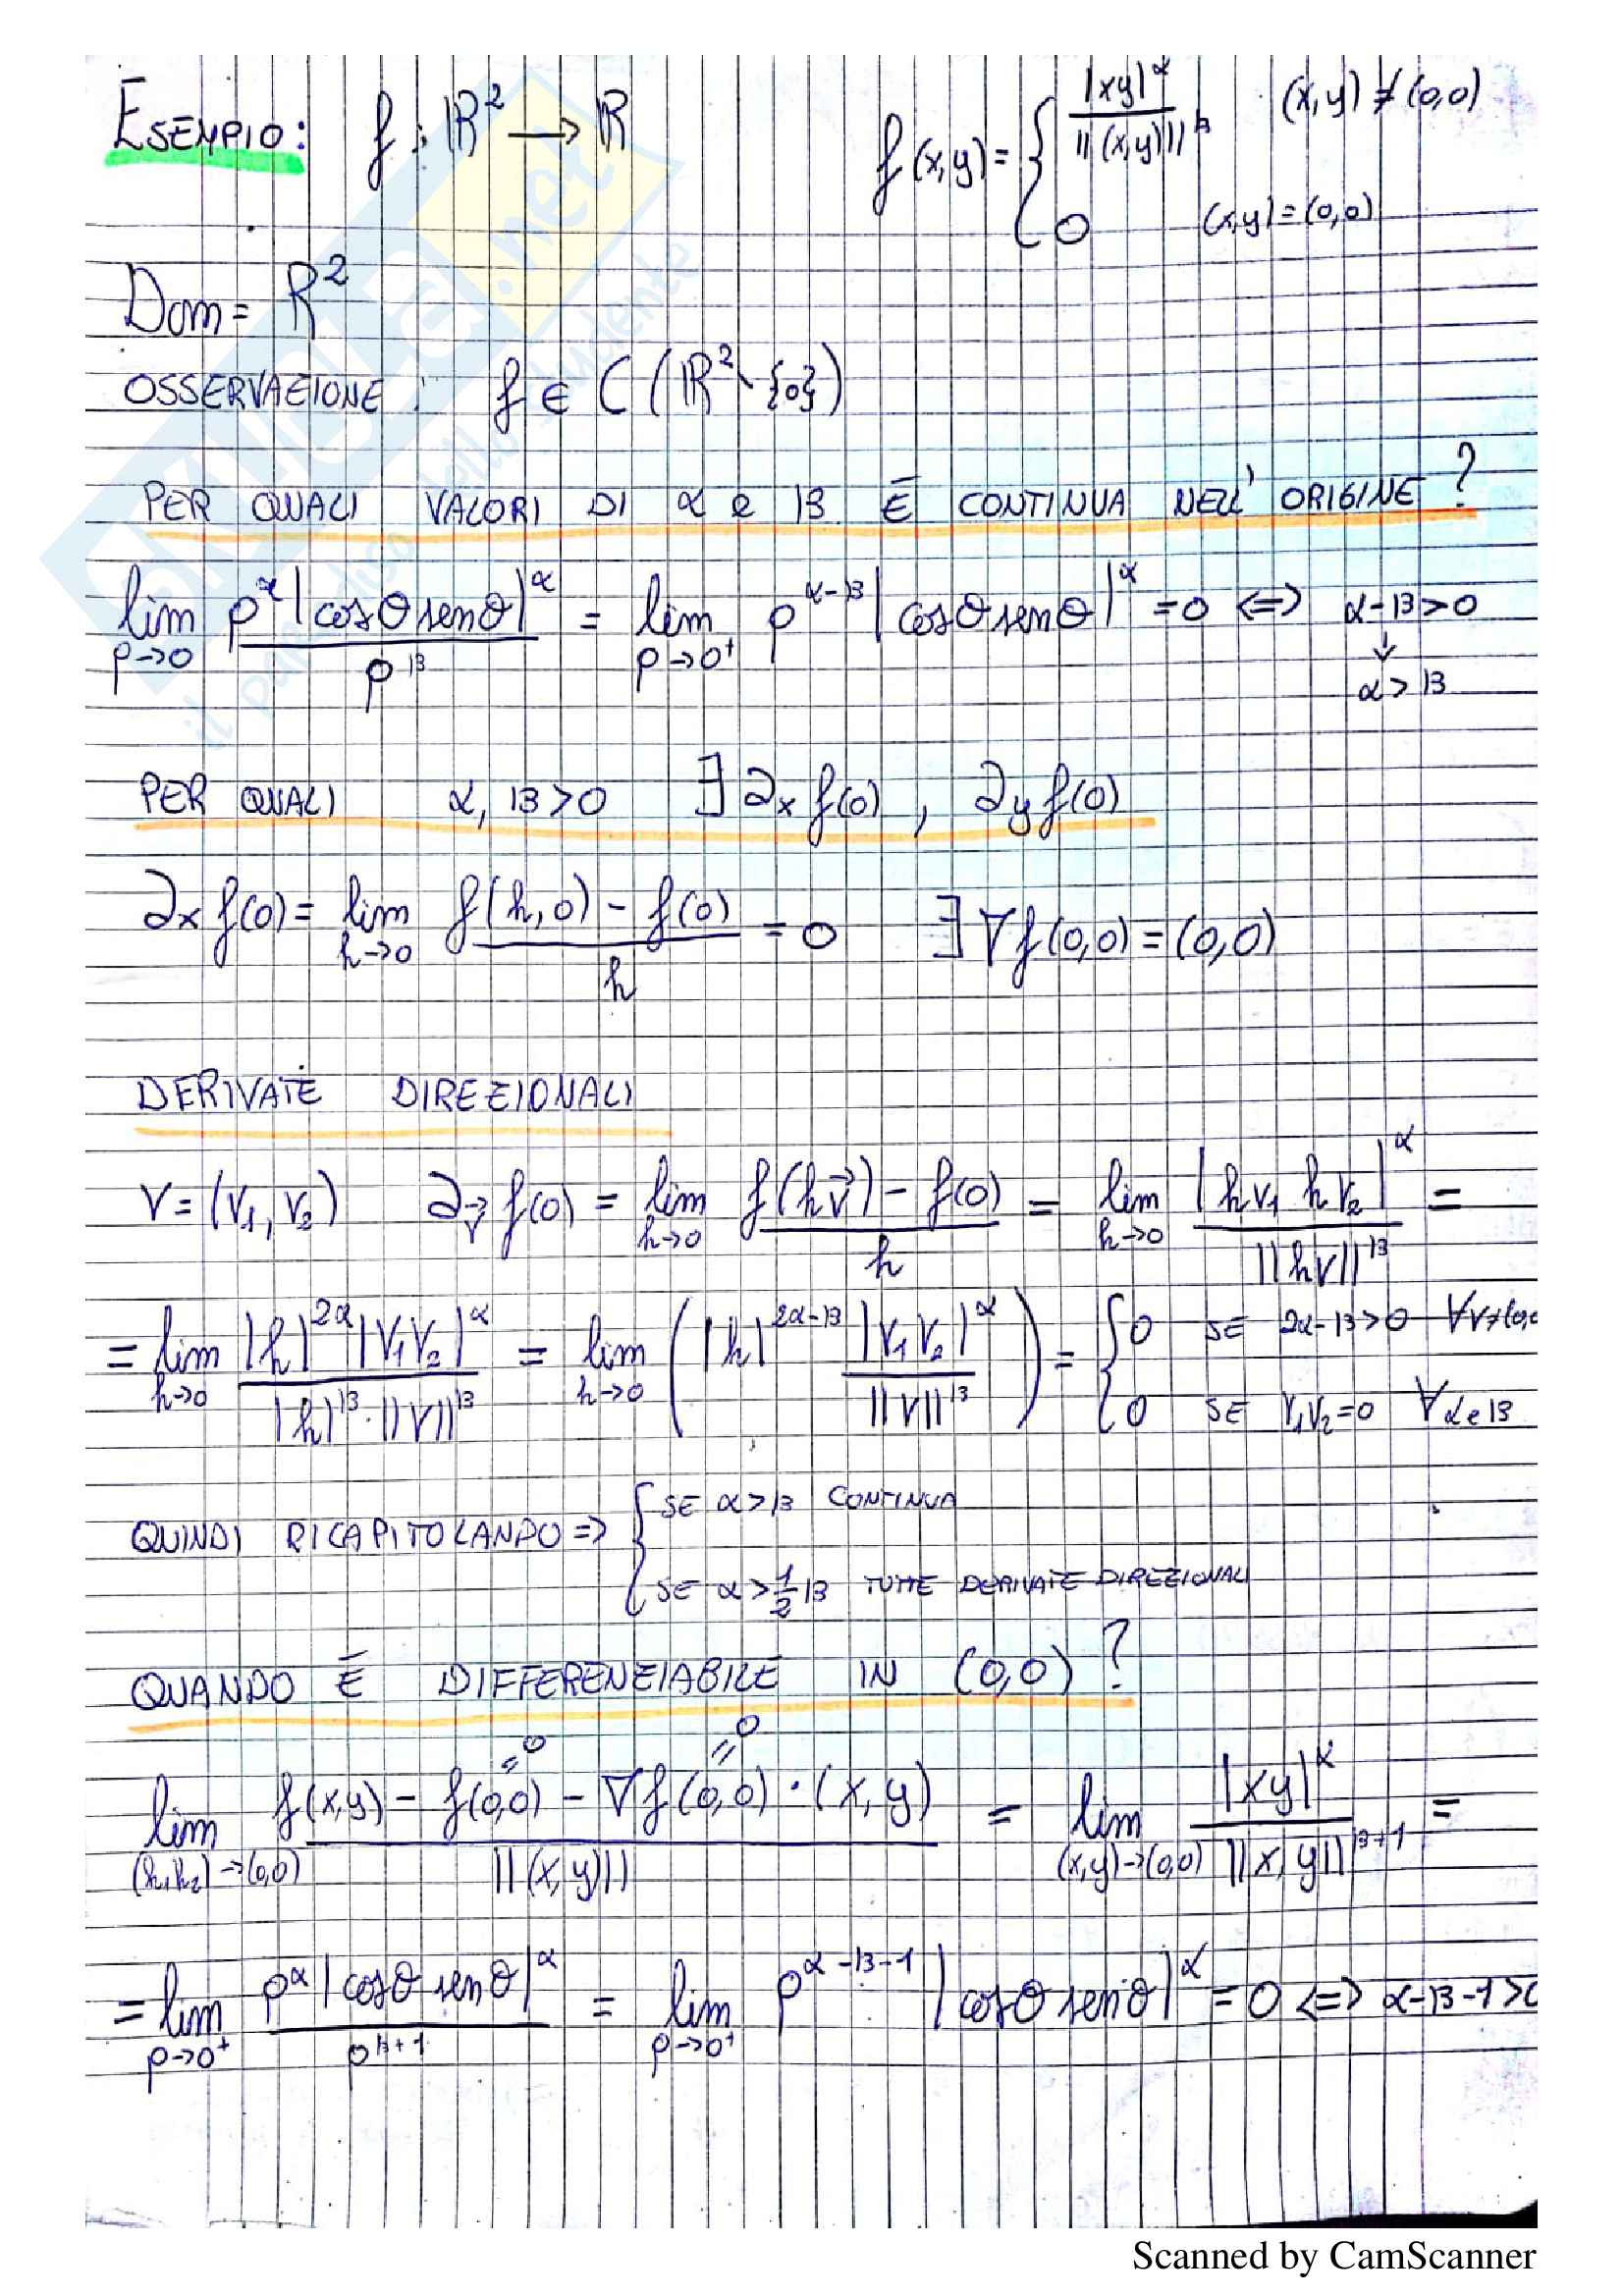 ESEMPIO: f: ℝ² → ℝ f(x,y) = { |xy|^α / ||(x,y)||^β (x,y) ≠ (0,0)
0 (x,y) = (0,0)
Dom = ℝ²
OSSERVAZIONE: f ∈ C(ℝ² \ {0})
PER QUALI VALORI DI α e β È CONTINUA NELL' ORIGINE?
lim ρ→0 ρ^α |cosθ senθ|^α / ρ^β = lim ρ→0⁺ ρ^(α-β) |cosθ senθ|^α = 0 <=> α-β>0
↓
α > β
PER QUALI α, β > 0 ∃ ∂x f(0), ∂y f(0)
∂x f(0) = lim h→0 f(h,0) - f(0) / h = 0 ∃ ∇f(0,0) = (0,0)
DERIVATE DIREZIONALI
V = (V₁, V₂) ∂v⃗ f(0) = lim h→0 f(hv⃗) - f(0) / h = lim h→0 |hV₁ hV₂|^α / ||hV||^β =
= lim h→0 |h|^(2α) |V₁V₂|^α / |h|^β · ||V||^β = lim h→0 ( |h|^(2α-β) |V₁V₂|^α / ||V||^β ) = { 0 SE 2α-β>0 ∀V≠(0,0
0 SE V₁V₂=0 ∀α e β
QUINDI RICAPITOLANDO => { SE α>β CONTINUA
SE α > 1/2 β TUTTE DERIVATE DIREZIONALI
QUANDO È DIFFERENZIABILE IN (0,0)?
=0 =0
lim (h₁h₂)→(0,0) f(x,y) - f(0,0) - ∇f(0,0)·(x,y) / ||(x,y)|| = lim (x,y)→(0,0) |xy|^α / ||x,y||^(β+1) =
= lim ρ→0⁺ ρ^α |cosθ senθ|^α / ρ^(β+1) = lim ρ→0⁺ ρ^(α-β-1) |cosθ senθ|^α = 0 <=> α-β-1>0
SKUOLA.net
il paradiso dello studente
Scanned by CamScanner